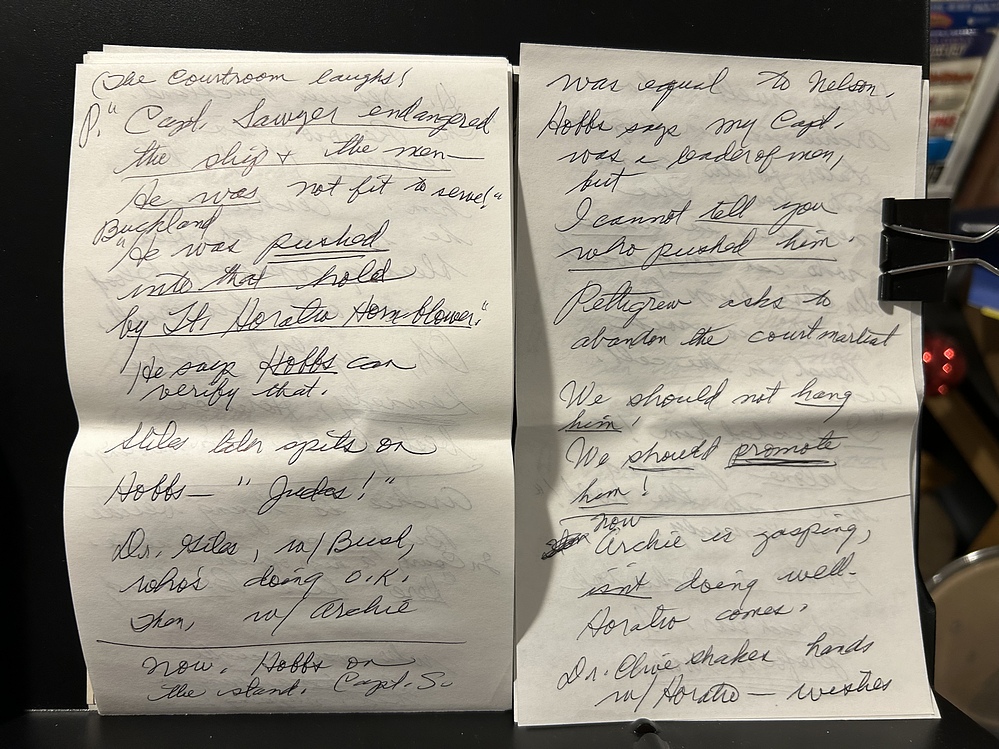 (The Courtroom laughs!
P. "Capt. Sawyer endangered
the ship + the men—
He was not fit to serve!"
Buckland
"He was pushed
into that hold
by Lt. Horatio Hornblower."
He says Hobbs can
verify that.
Stiles later spits on
Hobbs— "Judas!"
Dr. Giles, w/ Bush,
who's doing O.K.
Then, w/ Archie
Now, Hobbs on
the stand. Capt. S.
was equal to Nelson.
Hobbs says my Capt.
was a leader of men,
but
I cannot tell you
who pushed him.
Pettigrew asks to
abandon the court martial
We should not hang
him!
We should promote
him!
now
Archie is gasping,
isn't doing well.
Horatio comes.
Dr. Clive shakes hands
w/ Horatio — wishes